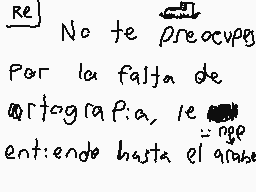 Re
No te preocupes
por la falta de
ortografia, le
nee
entiendo hasta el arabe